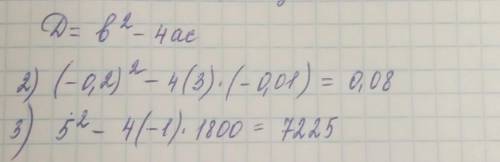 D = b² - 4ac
2) (-0,2)² - 4(3)·(-0,01) = 0,08
3) 5² - 4(-1)·1800 = 7225